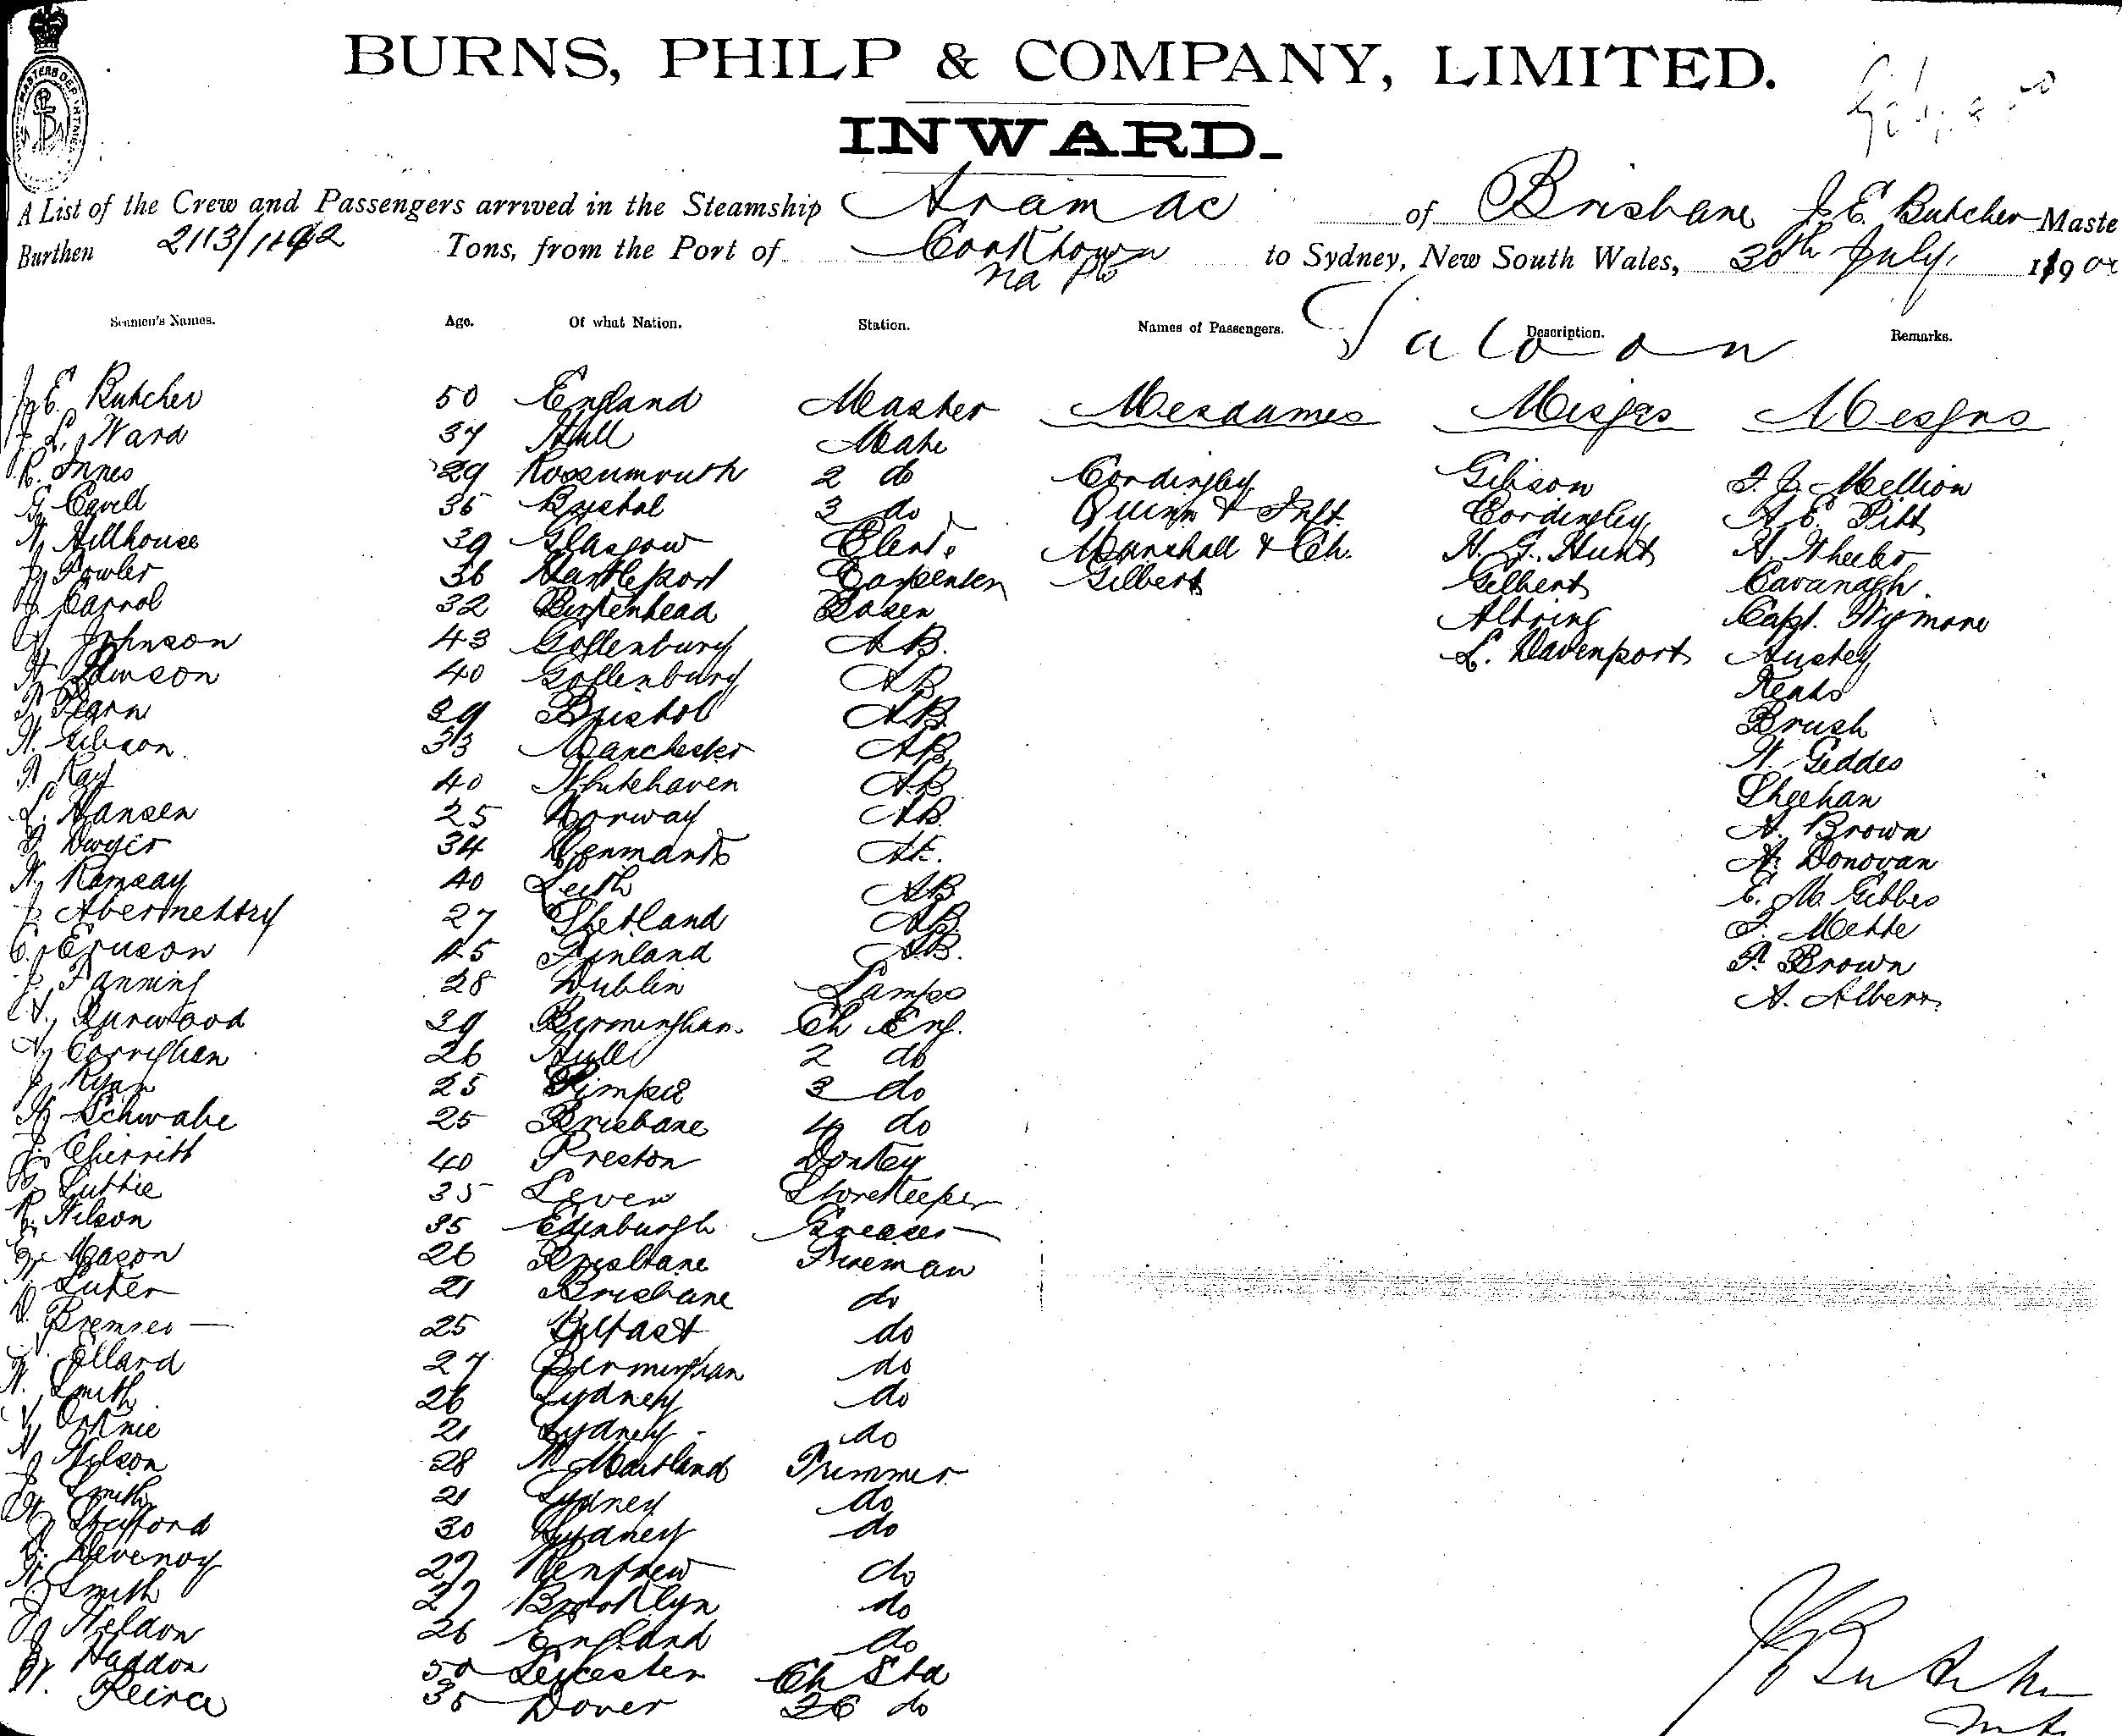 BURNS, PHILP & COMPANY, LIMITED.
INWARD.
A List of the Crew and Passengers arrived in the Steamship Aramac of Brisbane J. E. Butcher Maste
Burthen 2113/ Tons, from the Port of Cooktown to Sydney, New South Wales, 30th July, 190
via pts
Seamen's Names. Age. Of what Nation. Station. Names of Passengers. Description. Remarks.
Saloon
J. E. Butcher 50 England Master Mesdames Misses Messrs
L. Ward 37 Hull Mate
R. Innes 29 2 do Cordingley Gibson Mellion
G. Cavell 35 Bristol 3 do Quinn & Inft. Cordingley A. E. Pitt
Hillhouse 39 Glasgow Clerk Marshall & Ch. H. G. Hunt Wheeler
Fowler 36 Hartlepool Carpenter Gilbert Gilbert Cavanagh
J. Carrol 32 Birkenhead Bosen Capt. Wymore
Johnson 43 Gottenburg A.B. L. Davenport Austey
40 Gottenburg AB Keats
39 Bristol AB Brush
W. Gibson 33 Manchester AB W. Geddes
Kay 40 Whitehaven AB Sheehan
L. Hansen 25 Norway AB. A. Brown
Dwyer 34 Denmark A. Donovan
Ramsay 40 Leith AB E. M. Gibbes
27 Shetland AB. Mette
Ericson 45 Finland AB. P. Brown
Fanning 28 Dublin Lamps A.
39 Birmingham Ch Eng.
Corrighan 26 Hull 2 do
Ryan 25 3 do
Schwabe 25 Brisbane 4 do
Cherritt 40 Preston Donkey
Luttie 35 Leven Storekeeper
Nilson 35 Edinburgh Greaser
Mason 26 Brisbane Fireman
Luker 21 Brisbane do
Bremner 25 Belfast do
Ellard 27 Bermingham do
Smith 26 Sydney do
21 Sydney do
28 W. Maitland Trimmer
Smith 21 Sydney do
Stafford 30 Sydney do
27 Renfrew do
Smith 27 Brooklyn do
Weldon 26 England do
Haddon 50 Leicester Ch Std
W. Peirce 35 Dover do
J E Butcher